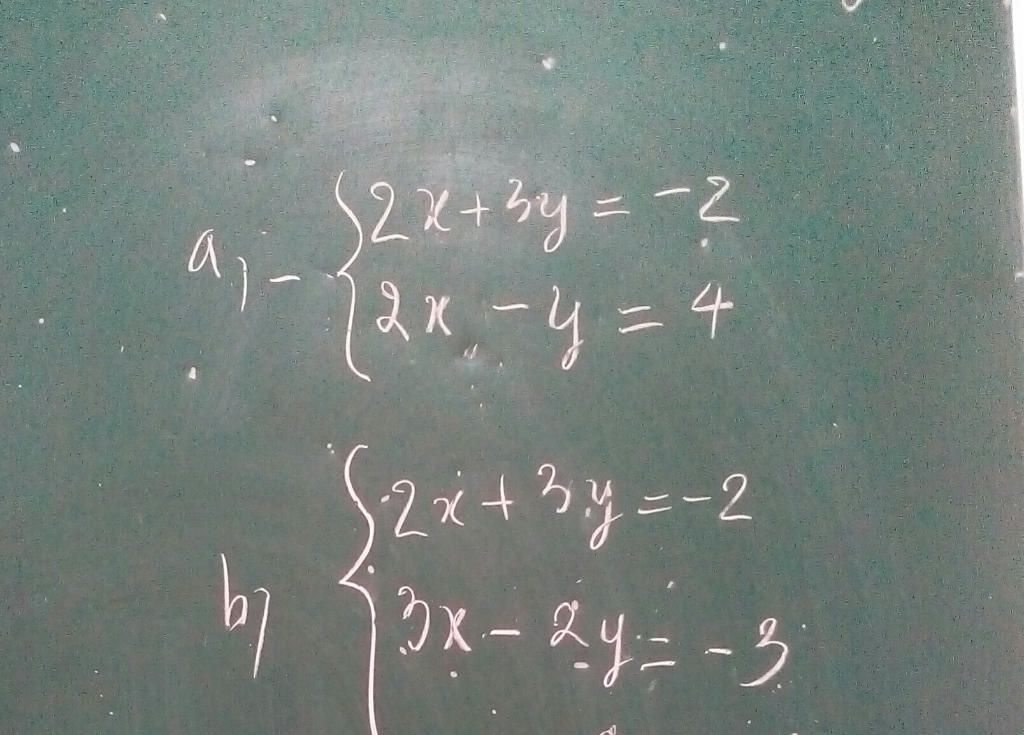 a, - { 2x + 3y = -2
2x - y = 4
b) { 2x + 3y = -2
3x - 2y = -3